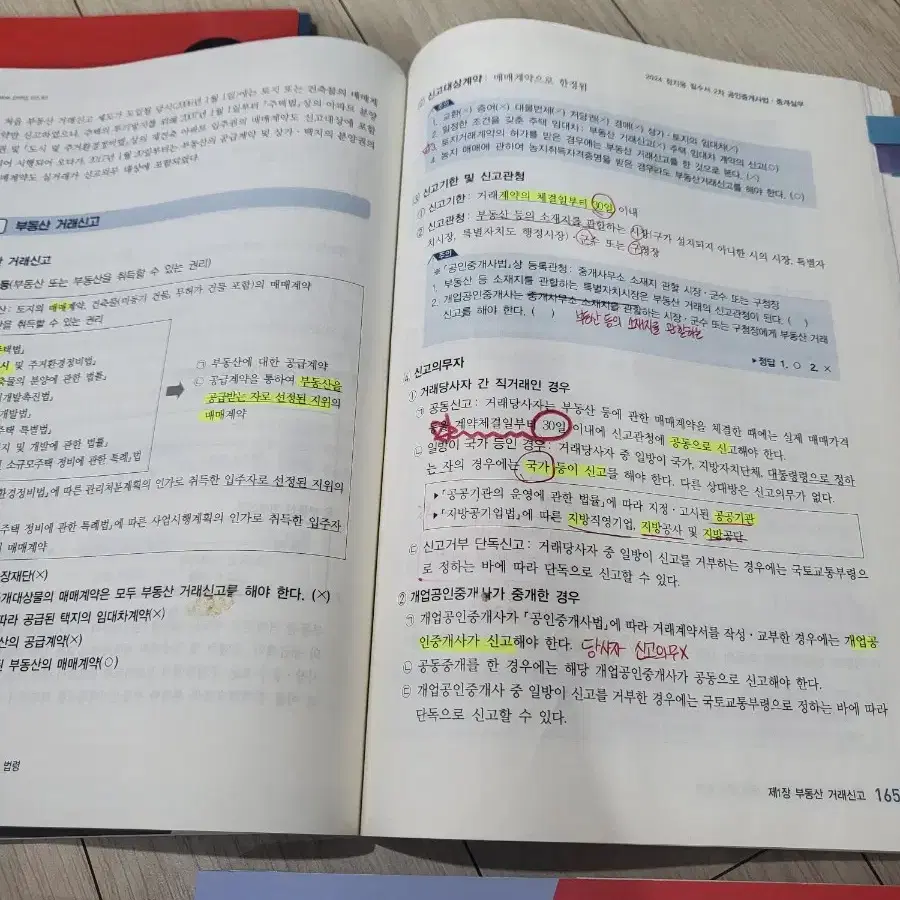 처음 부동산 거래신고 제도가 도입될 당시(2006년 1월 1일)에는 토지 또는 건축물의 매매계
약만 신고하였으나, 주택의 투기방지를 위해 2007년 1월 1일부터 「주택법」상의 아파트 분양
권 및 「도시 및 주거환경정비법」상의 재건축 아파트 입주권의 매매계약도 신고대상에 포함
되어 시행되어 오다가, 2017년 1월 20일부터는 부동산의 공급계약 및 상가·택지의 분양권의
매매계약도 실거래가 신고의무 대상에 포함되었다
부동산 거래신고
거래신고
등(부동산 또는 부동산을 취득할 수 있는 권리)
산: 토지의 매매계약, 건축물(미등기 건물, 무허가 건물 포함)의 매매계약
을 취득할 수 있는 권리
주택법」
시 및 주거환경정비법」
축물의 분양에 관한 법률」
개발촉진법」
개발법」
주택 특별법」
지 및 개발에 관한 법률」
소규모주택 정비에 관한 특례법
㉠ 부동산에 대한 공급계약
㉡ 공급계약을 통하여 부동산을
공급받는 자로 선정된 지위의
매매계약
환경정비법」에 따른 관리처분계획의 인가로 취득한 입주자로 선정된 지위의
주택 정비에 관한 특례법」에 따른 사업시행계획의 인가로 취득한 입주자
의 매매계약
장재단(×)
개대상물의 매매계약은 모두 부동산 거래신고를 해야 한다. (×)
따라 공급된 택지의 임대차계약(×)
산의 공급계약(×)
된 부동산의 매매계약(○)
법령
2024 정지웅 필수서 2차 공인중개사법·중개실무
⑵ 신고대상계약: 매매계약으로 한정됨
주의
1. 교환(×) 증여(×) 대물변제(×) 저당권(×) 경매(×) 상가·토지의 임대차(×)
2. 일정한 조건을 갖춘 주택 임대차: 부동산 거래신고(×) 주택 임대차 계약의 신고(○)
3. 토지거래계약의 허가를 받은 경우에는 부동산 거래신고를 한 것으로 본다. (×)
4. 농지 매매에 관하여 농지취득자격증명을 받은 경우라도 부동산거래신고를 해야 한다. (○)
⑶ 신고기한 및 신고관청
① 신고기한: 거래계약의 체결일부터 30일 이내
② 신고관청: 부동산 등의 소재지를 관할하는 시장(구가 설치되지 아니한 시의 시장, 특별자
치시장, 특별자치도 행정시장)·군수 또는 구청장
주의
※ 「공인중개사법」상 등록관청: 중개사무소 소재지 관할 시장·군수 또는 구청장
1. 부동산 등 소재지를 관할하는 특별자치시장은 부동산 거래의 신고관청이 된다. ( )
2. 개업공인중개사는 중개사무소 소재지를 관할하는 시장·군수 또는 구청장에게 부동산 거래
신고를 해야 한다. ( ) 부동산 등의 소재지를 관할하는
▶정답 1. ○ 2. ×
⑷ 신고의무자
① 거래당사자 간 직거래인 경우
㉠ 공동신고: 거래당사자는 부동산 등에 관한 매매계약을 체결한 때에는 실제 매매가격
등을 계약체결일부터 30일 이내에 신고관청에 공동으로 신고해야 한다.
㉡ 일방이 국가 등인 경우: 거래당사자 중 일방이 국가, 지방자치단체, 대통령령으로 정하
는 자의 경우에는 국가 등이 신고를 해야 한다. 다른 상대방은 신고의무가 없다.
▶「공공기관의 운영에 관한 법률」에 따라 지정·고시된 공공기관
▶「지방공기업법」에 따른 지방직영기업, 지방공사 및 지방공단
㉢ 신고거부 단독신고: 거래당사자 중 일방이 신고를 거부하는 경우에는 국토교통부령으
로 정하는 바에 따라 단독으로 신고할 수 있다.
② 개업공인중개사가 중개한 경우
㉠ 개업공인중개사가 「공인중개사법」에 따라 거래계약서를 작성·교부한 경우에는 개업공
인중개사가 신고해야 한다. 당사자 신고의무X
㉡ 공동중개를 한 경우에는 해당 개업공인중개사가 공동으로 신고해야 한다.
㉢ 개업공인중개사 중 일방이 신고를 거부한 경우에는 국토교통부령으로 정하는 바에 따라
단독으로 신고할 수 있다.
제1장 부동산 거래신고 165